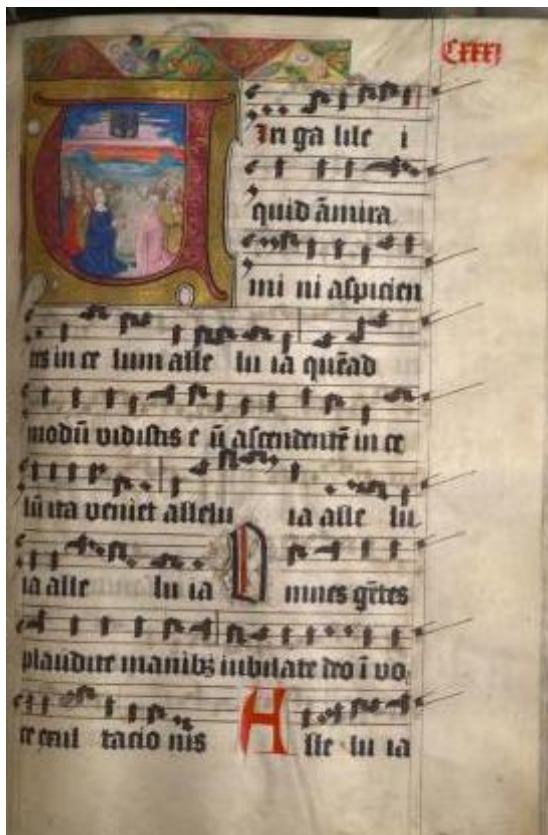 CXXXI
Viri galile i
quid āmira
mi ni aspicien
tes in ce lum alle lu ia quēad
modū vidistis e ū ascendentē in ce
lū ita veniet allelu ia alle lu
ia alle lu ia Omnes gētes
plaudite manibȝ iubilate deo ī vo
ce exul tacio nis Alle lu ia